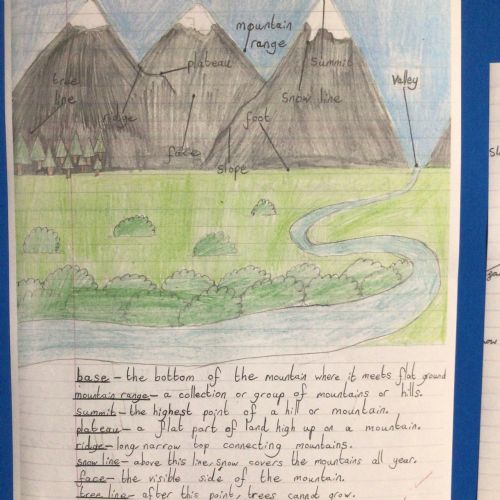 mountain range
plateau
summit
tree line
valey
snow line
ridge
foot
face
slope
base – the bottom of the mountain where it meets flat ground
mountain range – a collection or group of mountains or hills.
summit – the highest point of a hill or mountain.
plateau – a flat part of land high up on a mountain.
ridge – long narrow top connecting mountains.
snow line – above this line, snow covers the mountains all year.
face – the visible side of the mountain.
tree line – after this point, trees cannot grow.